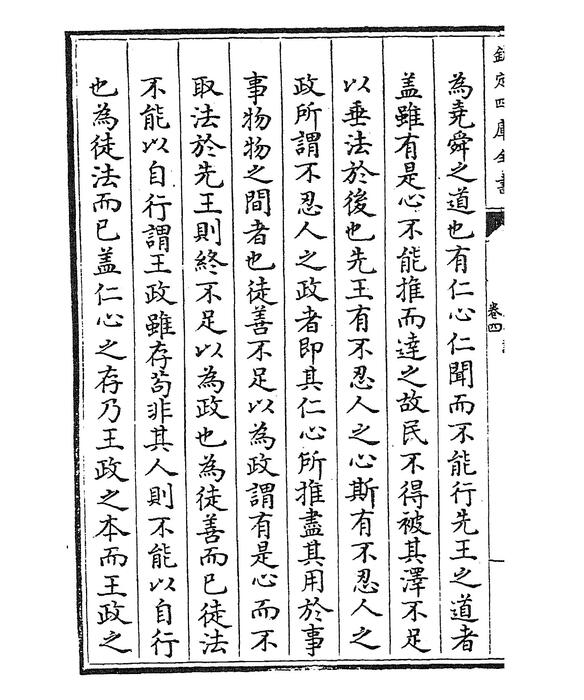 欽定四庫全書
卷四
為堯舜之道也有仁心仁聞而不能行先王之道者
盖雖有是心不能推而達之故民不得被其澤不足
以垂法於後也先王有不忍人之心斯有不忍人之
政所謂不忍人之政者即其仁心所推盡其用於事
事物物之間者也徒善不足以為政謂有是心而不
取法於先王則終不足以為政也為徒善而已徒法
不能以自行謂王政雖存苟非其人則不能以自行
也為徒法而已盖仁心之存乃王政之本而王政之